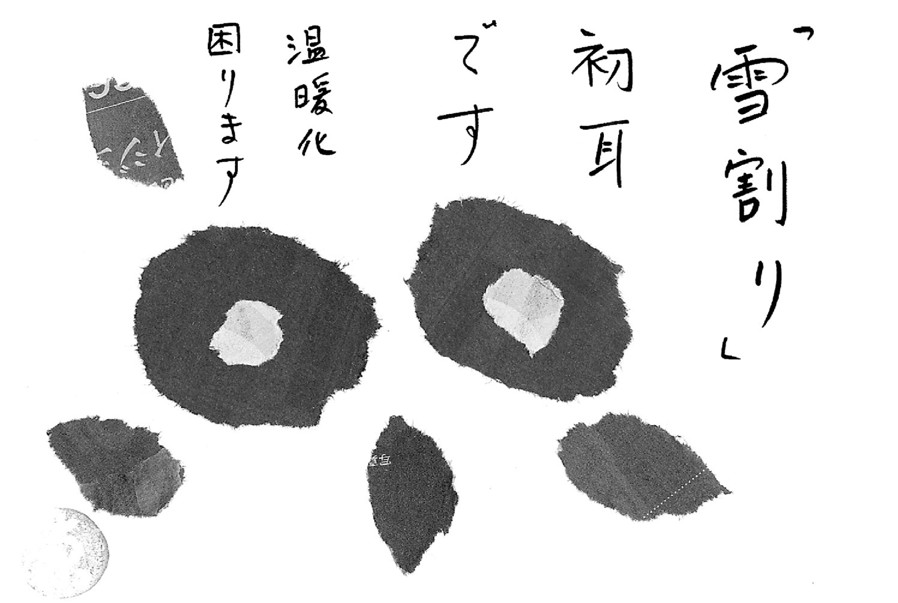 「雪割り」
初耳
です
温暖化
困ります